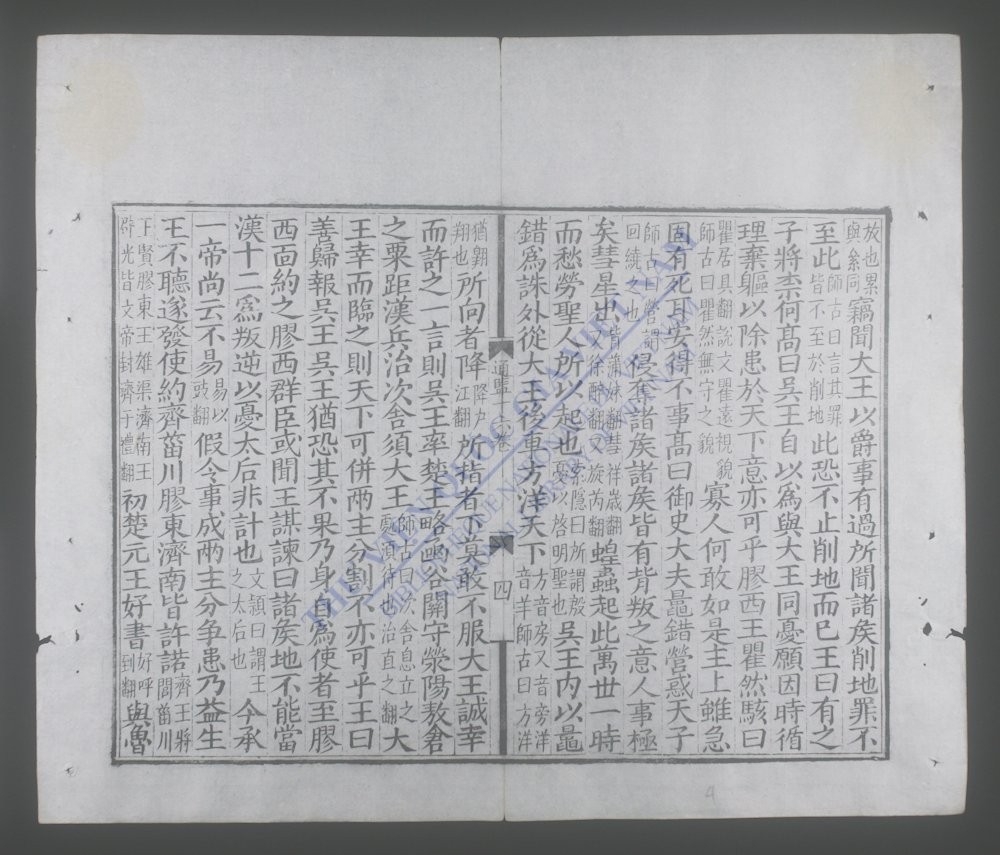 放也累與絫同竊聞大王以爵事有過所聞諸矦削地罪不
至此師古曰言其罪皆不至於削地此恐不止削地而已王曰有之
子將柰何髙曰吳王自以爲與大王同憂願因時循
理棄軀以除患於天下意亦可乎膠西王瞿然駭曰
瞿居具翻說文瞿遠視貌師古曰瞿然無守之貌寡人何敢如是主上雖急
固有死耳安得不事髙曰御史大夫鼂錯營惑天子
師古曰營謂回繞之也侵奪諸矦諸矦皆有背叛之意人事極
矣彗星出背蒲妹翻彗祥歲翻又徐醉翻又旋芮翻蝗蟲起此萬世一時
而愁勞聖人所以起也索隱曰所謂殷憂以啓明聖也吳王内以鼂
錯爲誅外從大王後車方洋天下方音房又音旁洋音羊師古曰方洋
通鑑卷
四
猶翺翔也所向者降降户江翻所指者下莫敢不服大王誠幸
而許之一言則吳王率楚王略凾谷關守滎陽敖倉
之粟距漢兵治次舍須大王師古曰次舍息立之處須待也治直之翻大
王幸而臨之則天下可併兩主分割不亦可乎王曰
善歸報吳王吳王猶恐其不果乃身自爲使者至膠
西面約之膠西群臣或聞王謀諫曰諸矦地不能當
漢十二爲叛逆以憂太后非計也文潁曰謂王之太后也今承
一帝尚云不易易以豉翻假令事成兩主分争患乃益生
王不聽遂發使約齊菑川膠東濟南皆許諾齊王將閭菑川
王賢膠東王雄渠濟南王辟光皆文帝封濟于禮翻初楚元王好書好呼到翻與魯
THƯ VIỆN QUỐC GIA VIỆT NAM
BIBLIOTHEQUE NATIONALE DU VIETNAM